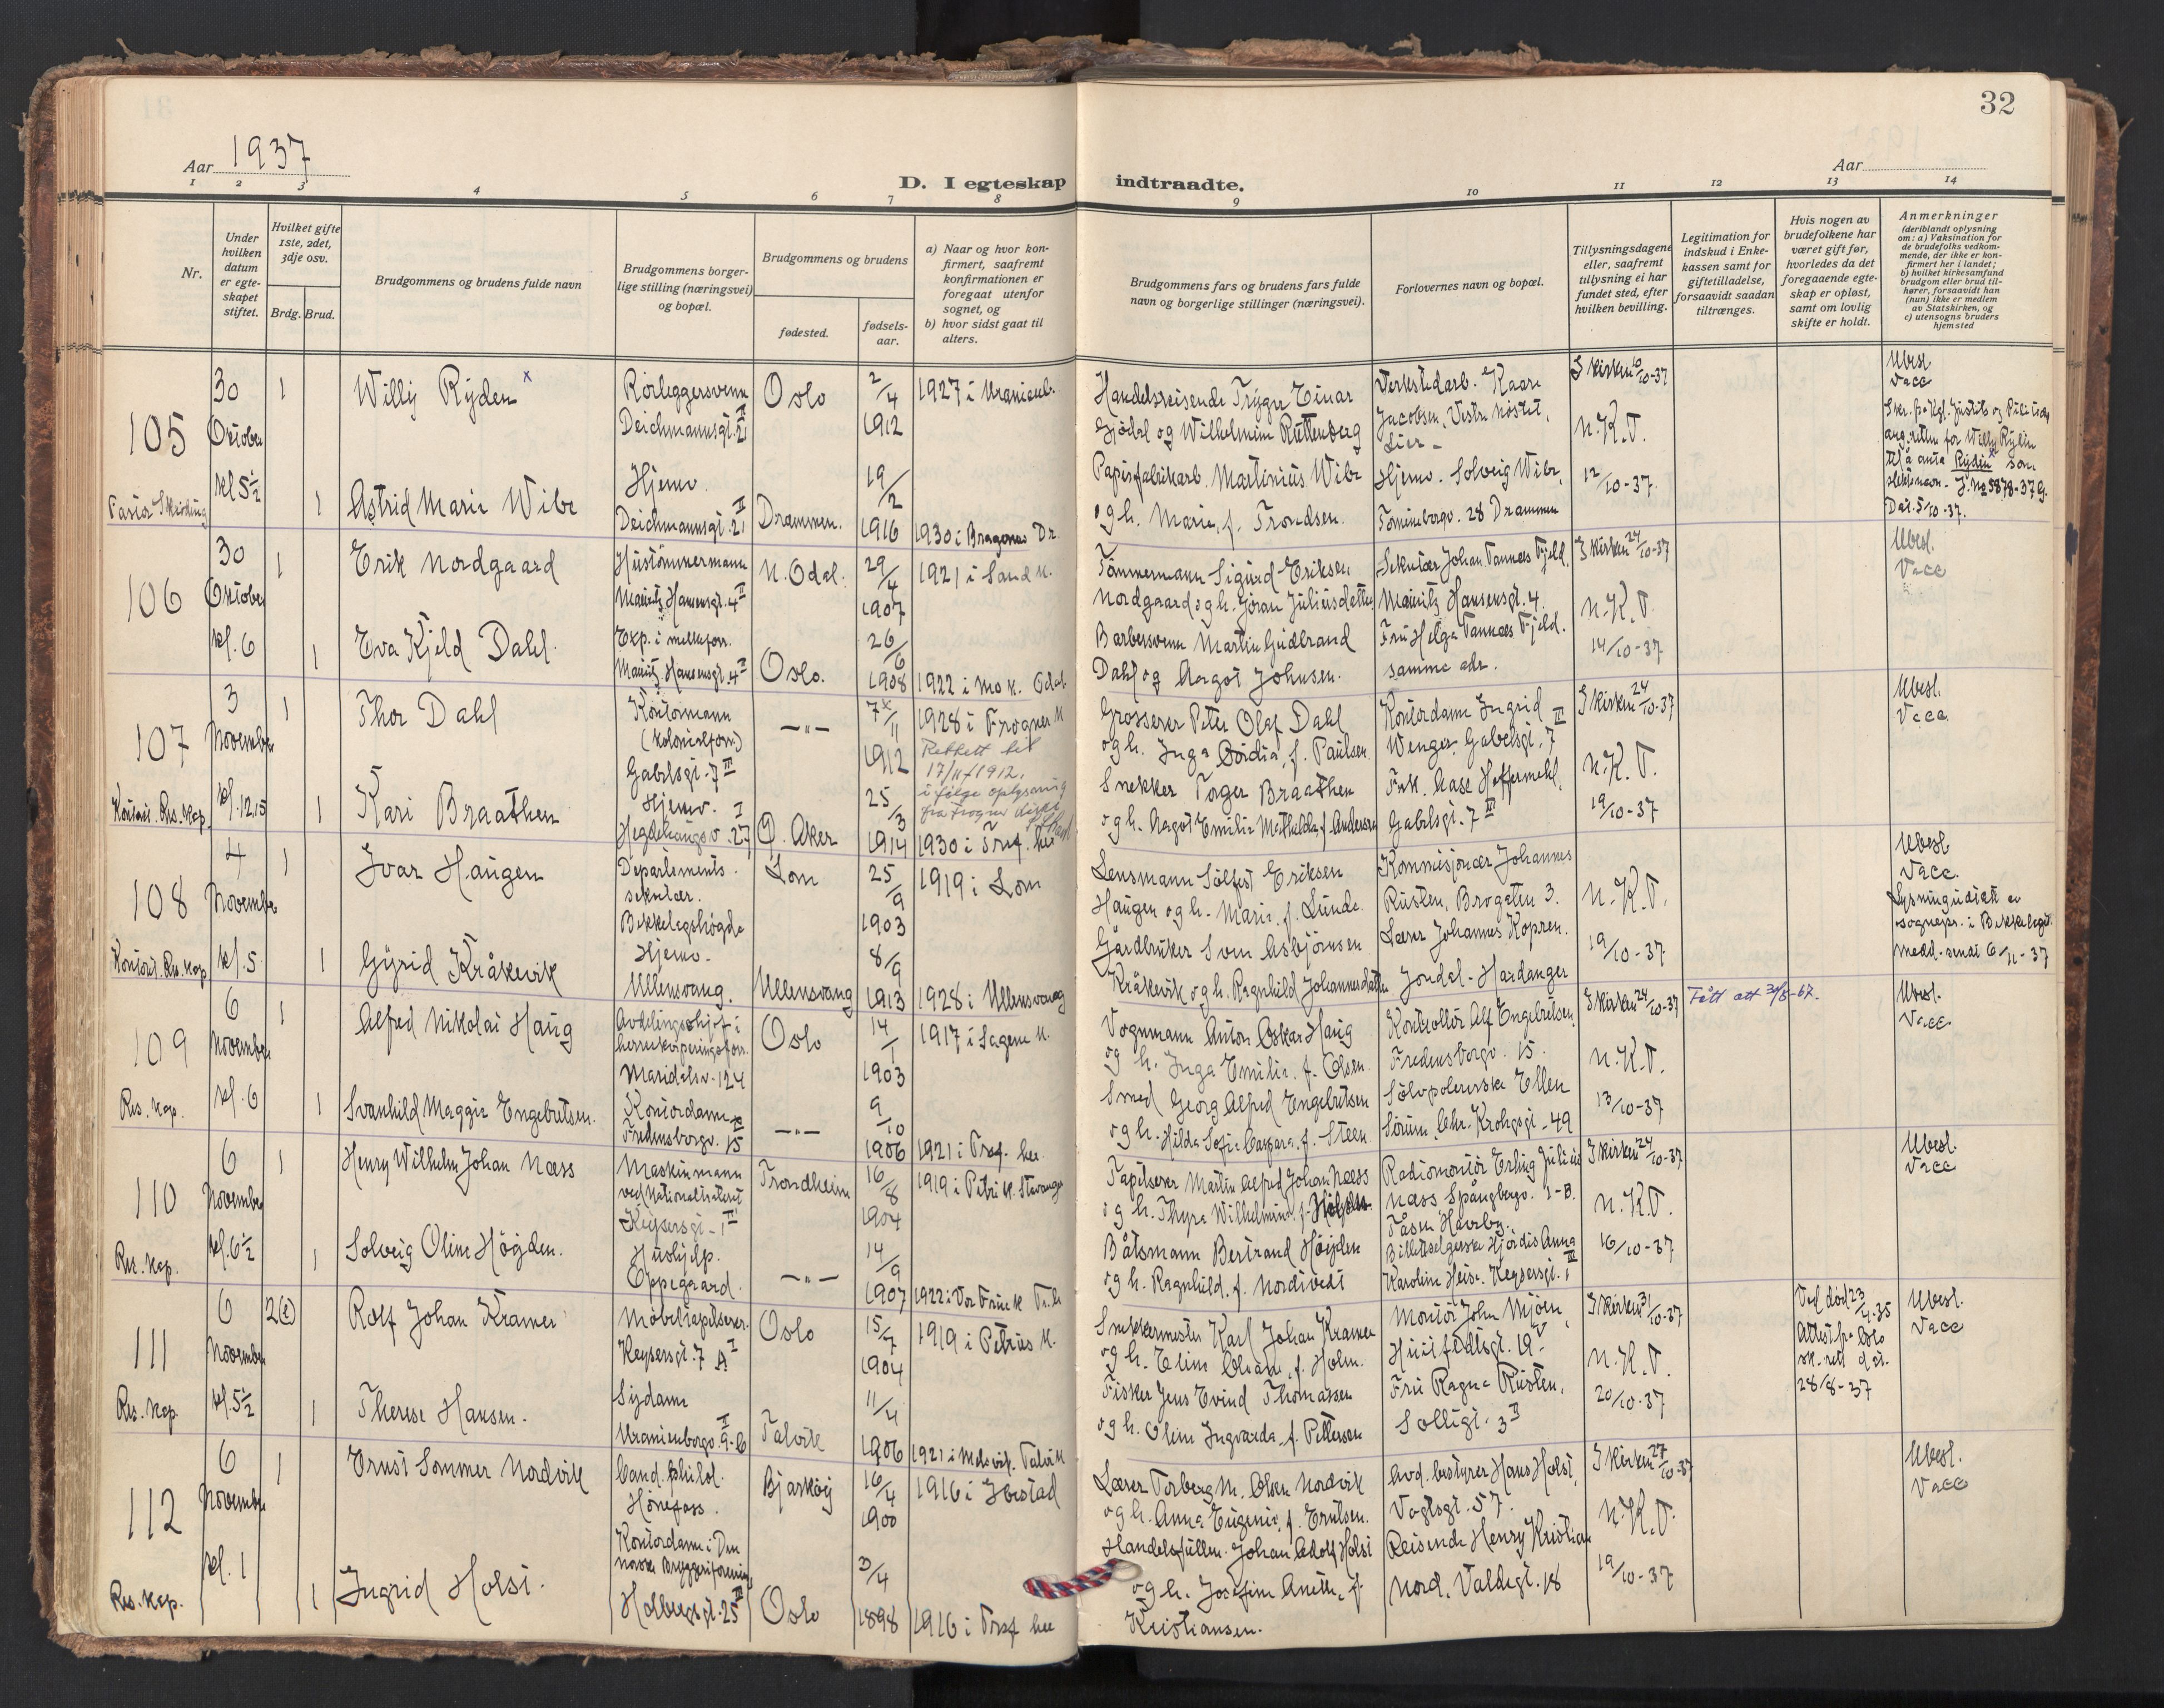 32
Aar 1937
Aar
D. I egteskap indtraadte.
1 2 3 4 5 6 7 8 9 10 11 12 13 14
Nr.
Under hvilken datum er egteskapet stiftet.
Hvilket gifte 1ste, 2det, 3dje osv.
Brdg. Brud.
Brudgommens og brudens fulde navn
Brudgommens borgerlige stilling (næringsvei) og bopæl.
Brudgommens og brudens
fødested.
fødselsaar.
a) Naar og hvor konfirmert, saafremt konfirmationen er foregaat utenfor sognet, og
b) hvor sidst gaat til alters.
Brudgommens fars og brudens fars fulde navn og borgerlige stillinger (næringsvei).
Forlovernes navn og bopæl.
Tillysningsdagene eller, saafremt tillysning ei har fundet sted, efter hvilken bevilling.
Legitimation for indskud i Enkekassen samt for giftetilladelse, forsaavidt saadan tiltrænges.
Hvis nogen av brudefolkene har været gift før, hvorledes da det foregaaende egteskap er opløst, samt om lovlig skifte er holdt.
Anmerkninger
(deriblandt oplysning om: a) Vaksination for de brudefolks vedkommende, der ikke er konfirmert her i landet; b) hvilket kirkesamfund brudgom eller brud tilhører, forsaavidt han (hun) ikke er medlem av Statskirken, og c) utensogns bruders hjemsted
105
30 Oktober kl 5½
1
Willy Ryden x
Rörleggersvenn
Deichmannsgt. 21 II
Oslo
2/4 1912
1927 i Uranienb.
Handelsreisende Trygve Einar
Gjödal og Wilhelmine Ruttenberg
Verkstedarb. Kaare
Jacobsen, Vestre Nöstet,
Lier
I kirken 10/10-37
N.K.T.
12/10-37
Ubesl.
Vacc
til å anta Ryden som
slektsnavn - J.No 5878-37 G.
Dat. 5/10-37.
1
Astrid Marie Wibe
Hjemv.
Deichmannsgt. 21 II
Drammen.
19/2 1916
1930 i Bragernes Dr.
Papirfabrikarb. Martinius Wibe
og h. Marie, f. Trondsen.
Hjemv. Solveig Wibe,
28 Drammen
106
30 Oktober kl. 6
1
Erik Nordgaard
Hustömmermann
Mauritz Hansensgt. 4 II
N. Odal.
29/4 1907
1921 i Sand K.
Tömmermann Sigurd Eriksen
Nordgaard og h. Jöran Juliusdatter
Sekretær Johan Vannæs Fjeld
Mauritz Hansensgt. 4
I kirken 24/10-37
N.K.T.
14/10-37
Ubesl.
Vacc
1
Eva Kjeld Dahl.
Exp. i melkeforr.
Mauritz Hansensgt. 4 II
Oslo.
26/6 1908
1922 i Mo K. Odal
Barbersvenn Martin Gudbrand
Dahl og Aagot Johnsen.
Fru Helga Vannæs Fjeld.
samme adr.
107
3 November kl. 12.15
Kontoret. Res. kap.
1
Thor Dahl
Kontormann
(kolonialforr.)
Gabelsgt. 7 III
— " —
7x/11 1912
1928 i Frogner K
Rettett til
17/11 1912.
i følge oplysning
fra Frogner
Grosserer Peter Olaf Dahl
og h. Inga Bordia, f. Paulsen
Kontordame Ingrid
Wenger, Gabelsgt. 7 III
I kirken 24/10-37
N.K.T.
19/10-37
Ubesl.
Vacc.
1
Kari Braathen
Hjemv.
Hegdehaugsv. 27 I
Ø. Aker
25/3 1914
1930 i Tref. her
Snekker Torger Braathen
og h. Aagot Emilie Mathilde, f. Andersen
Frk. Aase Heffermehl
Gabelsgt. 7 III
108
4 November kl. 5
Kontoret. Res. kap
1
Ivar Haugen
Departements-
sekretær.
Bekkelagshögda
Lom
25/9 1903
1919 i Lom
Lensmann Sölfest Eriksen
Haugen og h. Marie, f. Lunde.
Kommisjonær Johannes
Rusten, Brogaten 3.
N.K.T.
19/10-37
Ubesl
Vacc.
Lysning utstedt av
sognepr. i Bekkelaget.
Medd. sendt 6/11-37
1
Gyrid Kråkevik
Hjemv.
Ullensvang.
Ullensvang
8/9 1913
1928 i Ullensvang
Gårdbruker Sven Asbjörnsen
Kråkevik og h. Ragnhild Johannesdatter
Lærer Johannes Kopren.
Jondal - Hardanger
109
6 November kl. 6
Res. kap.
1
Alfred Nikolai Haug
Avdelingssjef i
herreekviperingsforr.
Maridalsv. 124
Oslo
14/1 1903
1917 i Sagene K.
Vognmann Anton Oskar Haug
og h. Inga Emilie, f. Olsen
Kontrollör Alf Engebretsen,
Fredensborgv. 15.
I kirken 24/10-37
N.K.T.
13/10-37
Fått att 30/8-67.
Ubesl.
Vacc.
1
Svanhild Maggie Engebretsen.
Kontordame
Fredensborgv. 15 III
— " —
9/10 1906
1921 i Tref. her
Smed Georg Alfred Engebretsen
og h. Hilda Sofie Barbara, f. Steen
Sölvpolererske Ellen
Sörum, Chr. Krohgsgt. 49
110
6 November kl. 6½
Res. kap.
1
Henry Wilhelm Johan Næss
Maskinmann
ved Nationalteatret
Keysersgt. 1 III
Trondheim
16/8 1904
1919 i Petri K. Stavanger
Tapetserer Martin Alfred Johan Næss
og h. Thyra Wilhelmine, f.
Radiomontör Erling Julius
Næss Spångbergv. 1-B.
Tåsen Haveby.
I kirken 24/10-37
N.K.T.
16/10-37
Ubesl.
Vacc
1
Solveig Oline Höyden.
Hushjelp.
Oppegaard.
— " —
14/9 1907
1922 i Vor Frue K Tr.h
Båtsmann Bertrand Höyden
og h. Ragnhild, f. Nordtvedt
Billettselgerske Hjördis Anna
Karoline Heise. Keysersgt. 1 III
111
6 November kl. 5½
Res. kap.
2(e)
Rolf Johan Kramer
Möbeltapetserer.
Keysersgt. 7 A I
Oslo
15/7 1904
1919 i Petrus K.
Snekkermester Karl Johan Kramer
og h. Elise Oleane, f. Holm.
Montör John Mjöen,
Huitfeldtsgt. 19 V
I kirken 31/10-37
N.K.T.
20/10-37
Ved död 23/4-35
Attest fra Oslo
sk. rett dat.
28/8-37
Ubesl.
Vacc
1
Therese Hansen.
Sydame
Uranienborgv. 9-b II
Talvik
11/4 1906
1921 i Talvik
Fisker Jens Evind Thomassen
og h. Oline Ingvarda, f. Pettersen
Fru Ragna Rusten,
Solligt. 3 II
112
6 November kl. 1
Res. kap.
1
Ernst Sommer Nordvik
Cand. philol.
Hönefoss.
Bjarköy
16/4 1900
1916 i Ibestad
Lærer Torberg M. Olsen Nordvik
og h. Anna Eugenie, f. Erntsen.
Avd. bestyrer Hans Holst,
Vogtsgt. 57.
I kirken 27/10-37
N.K.T.
19/10-37
Ubesl.
Vacc
1
Ingrid Holst.
Kontordame i Den
norske Bryggeriforening
Holbergsgt. 25 III
Oslo
3/4 1898
1916 i Tref her
Handelsfullm. Johan Adolf Holst
og h. Josefine Anette, f.
Kristiansen.
Reisende Henry Kristian
Nord, Valdresgt. 18